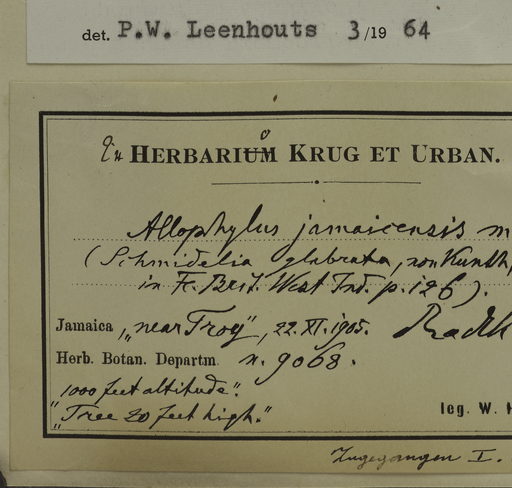 det. P.W. Leenhouts 3/19 64
Ex HERBARIUM KRUG ET URBAN.
Allophylus jamaicensis m
(Schmidelia glabrata, non Kunth,
in Fl. Brit. West Ind. p. 126).
Jamaica "near Troy", 22. XI. 1905. Radlk
Herb. Botan. Departm. n. 9068.
"1000 feet altitude".
"Tree 20 feet high."
leg. W. H
Zugegangen I.